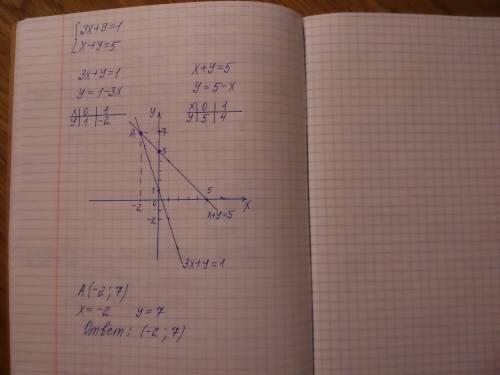 {3x+y=1
x+y=5
3x+y=1
y=1-3x
x | 0 | 1
y | 1 | -2
x+y=5
y=5-x
x | 0 | 1
y | 5 | 4
y
A 7
5
1
-2 0 5 x
-2
x+y=5
3x+y=1
A(-2; 7)
x=-2 y=7
Ответ: (-2; 7)